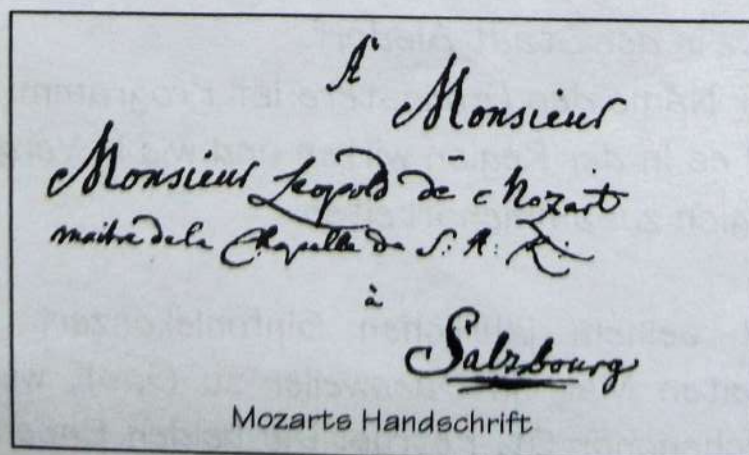 A
Monsieur
Monsieur Leopold de Mozart
maitre de la Chapelle de S: A: R:
à
Salzbourg
Mozarts Handschrift